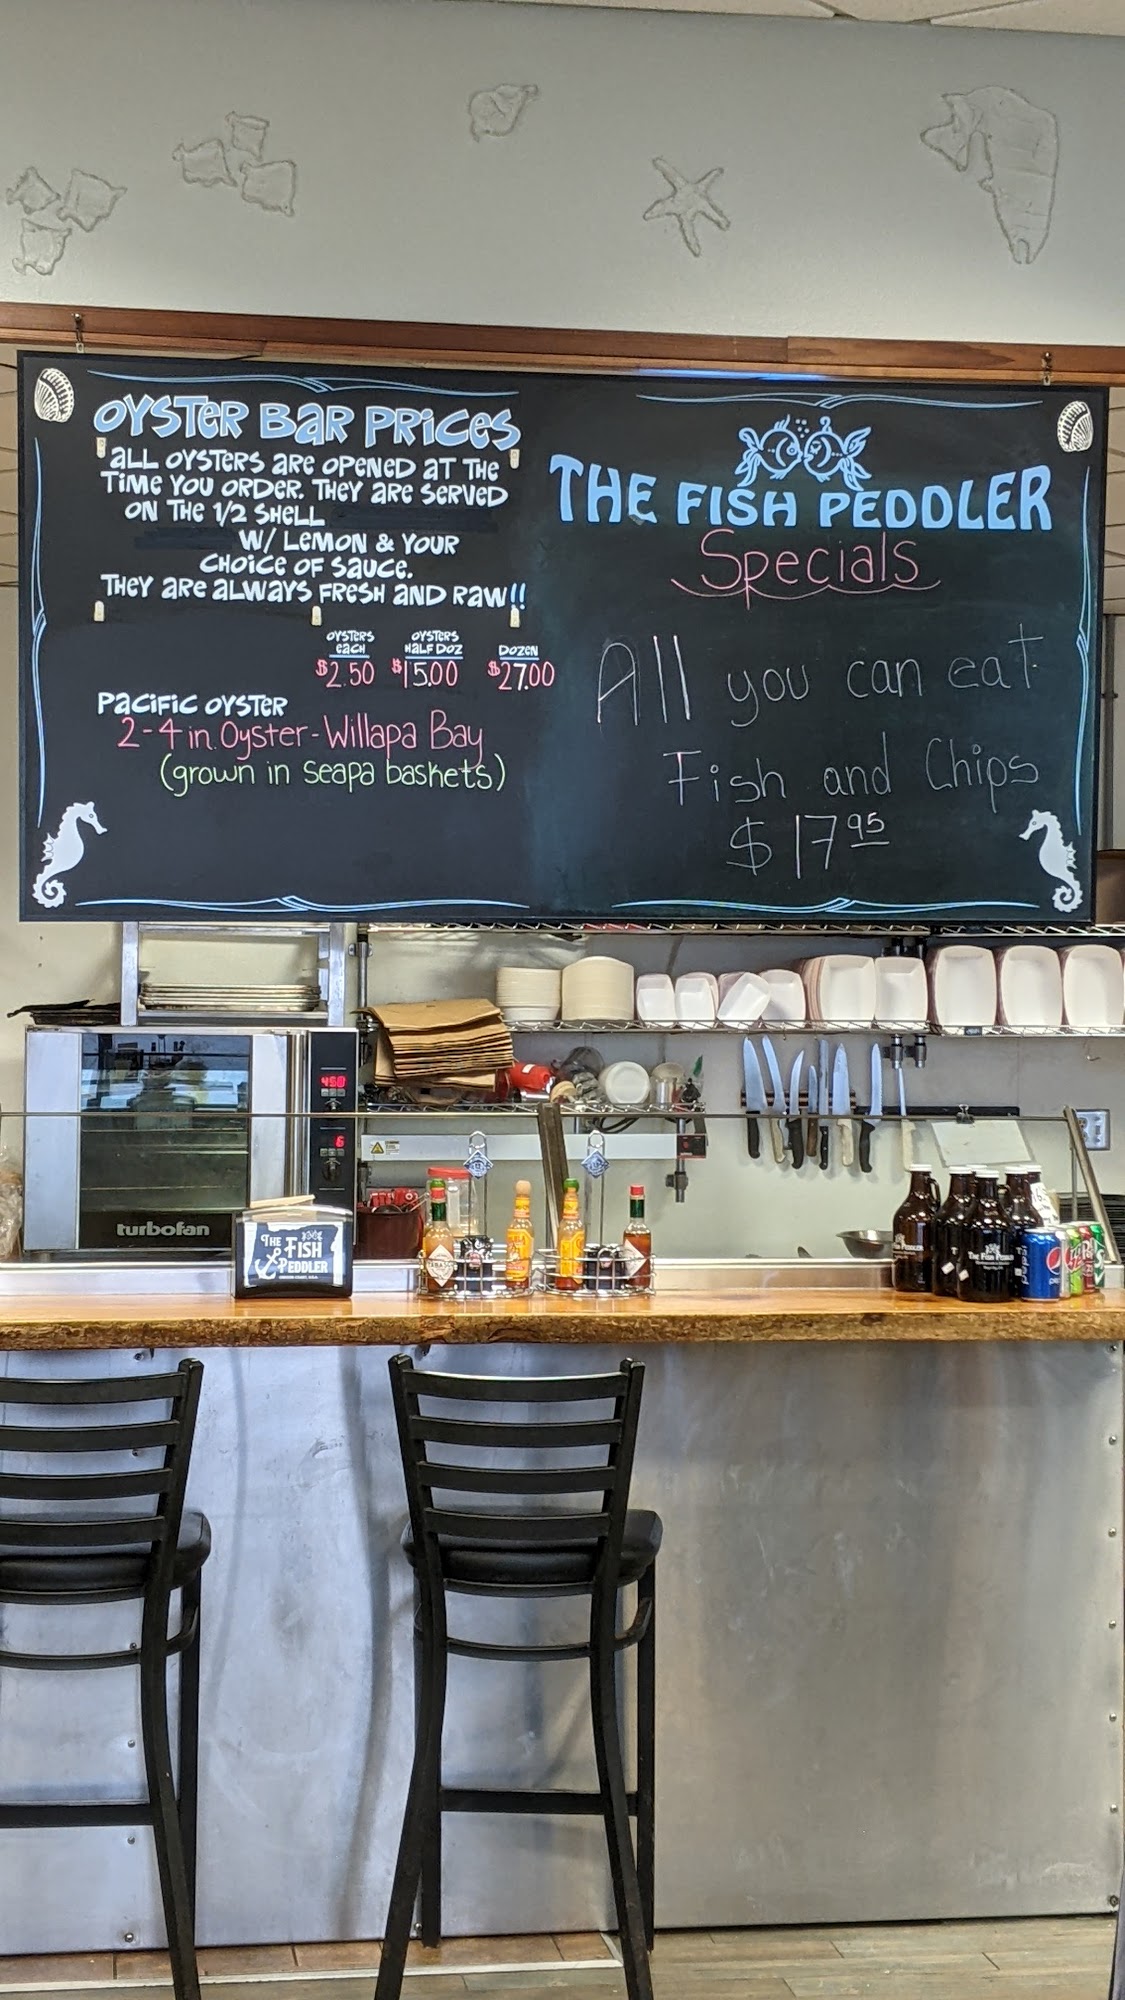 OYSTER BAR PRICES
ALL OYSTERS ARE OPENED AT THE
TIME YOU ORDER. THEY ARE SERVED
ON THE 1/2 SHELL
W/ LEMON & YOUR
CHOICE OF SAUCE.
THEY ARE ALWAYS FRESH AND RAW!!
OYSTERS EACH
$2.50
OYSTERS HALF DOZ
$15.00
DOZEN
$27.00
PACIFIC OYSTER
2-4 in. Oyster-Willapa Bay
(grown in Seapa baskets)
THE FISH PEDDLER
Specials
All you can eat
Fish and Chips
$17.95
450
6
turbofan
THE
FISH
PEDDLER
pepsi